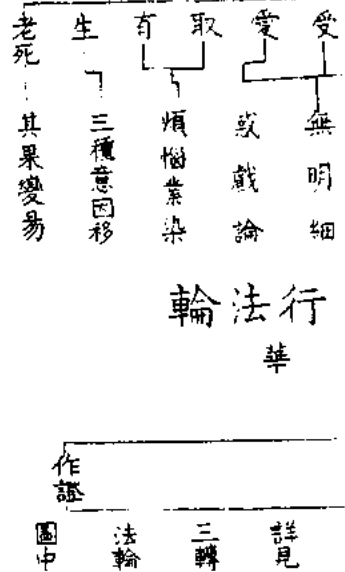 受
愛
取
有
生
老死
無明細
或戲論
煩惱業染
三種意因移
其果變易
行法輪
華
作證
詳見
三轉
法輪
圖中